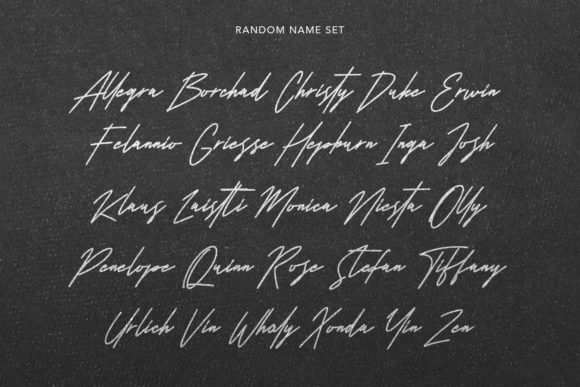 RANDOM NAME SET
Allegra Borchad Christy Duke Erwin
Felannio Griesse Hepburn Inga Josh
Klaus Laistli Monica Niesta Olly
Penelope Quinn Rose Stefan Tiffany
Urlich Vin Wholy Xonda Yin Zen